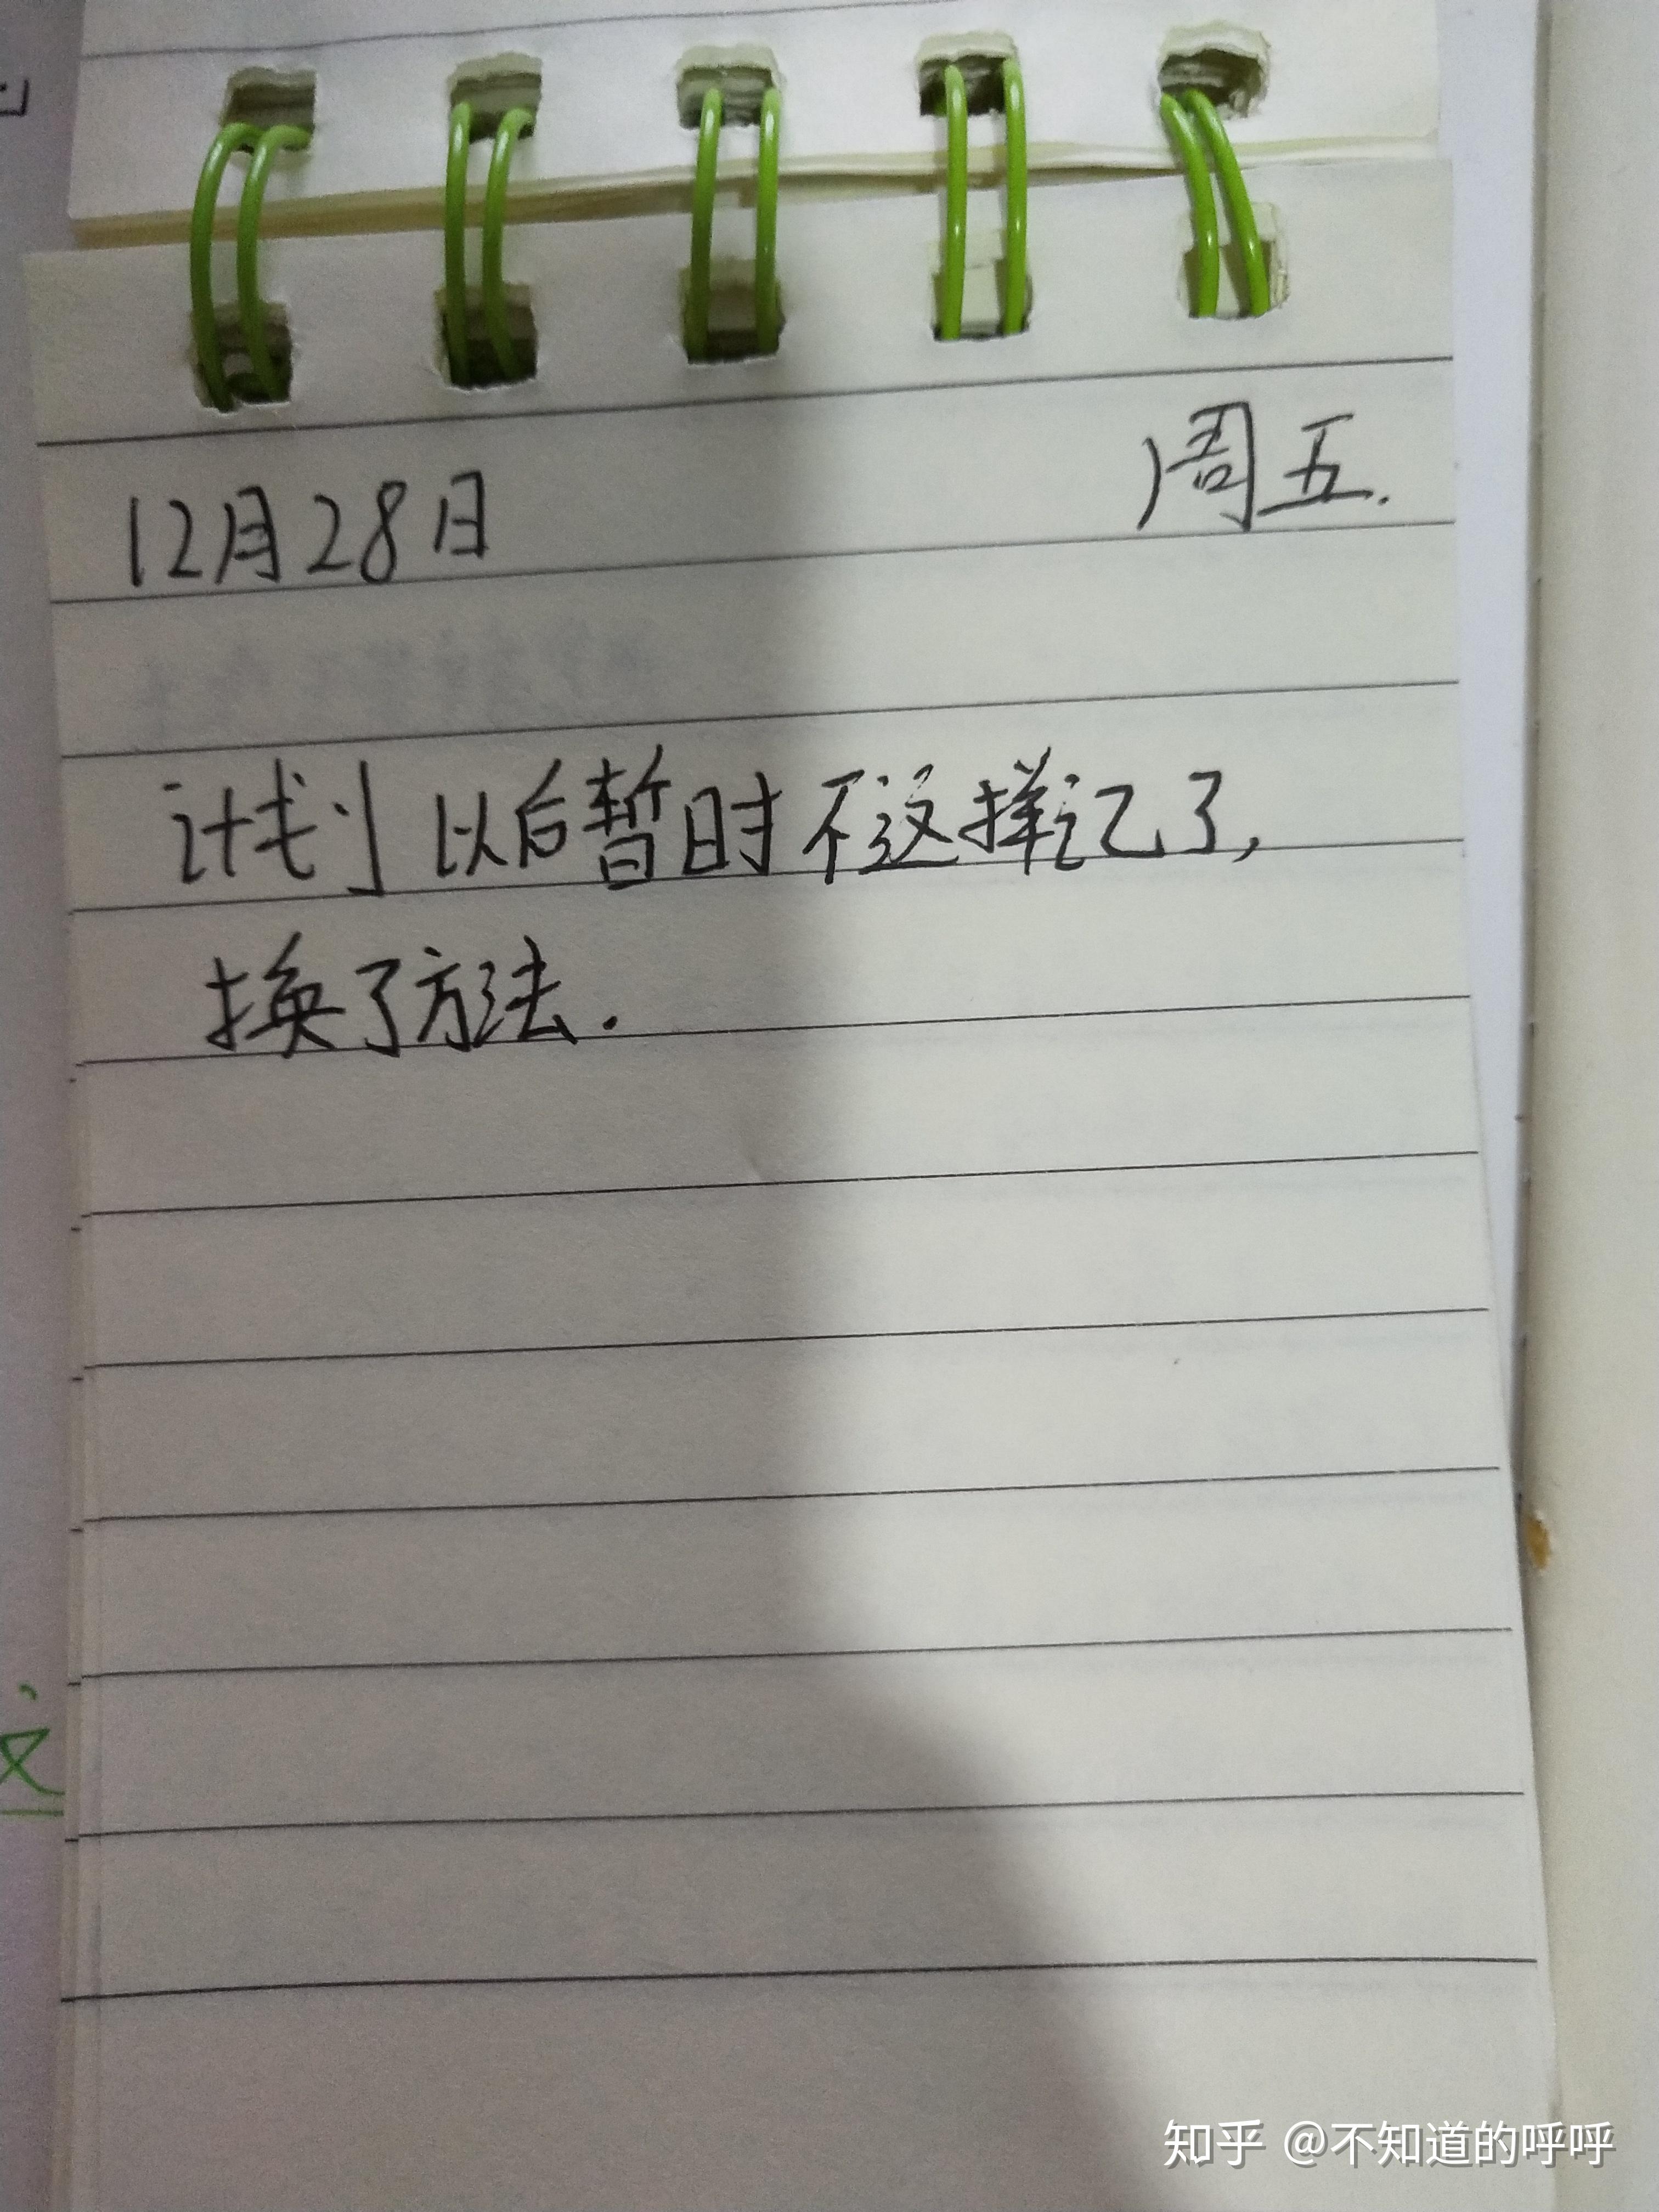 12月28日 周五.
计划以后暂时不这样记了,
换了方法.
知乎 @不知道的呼呼